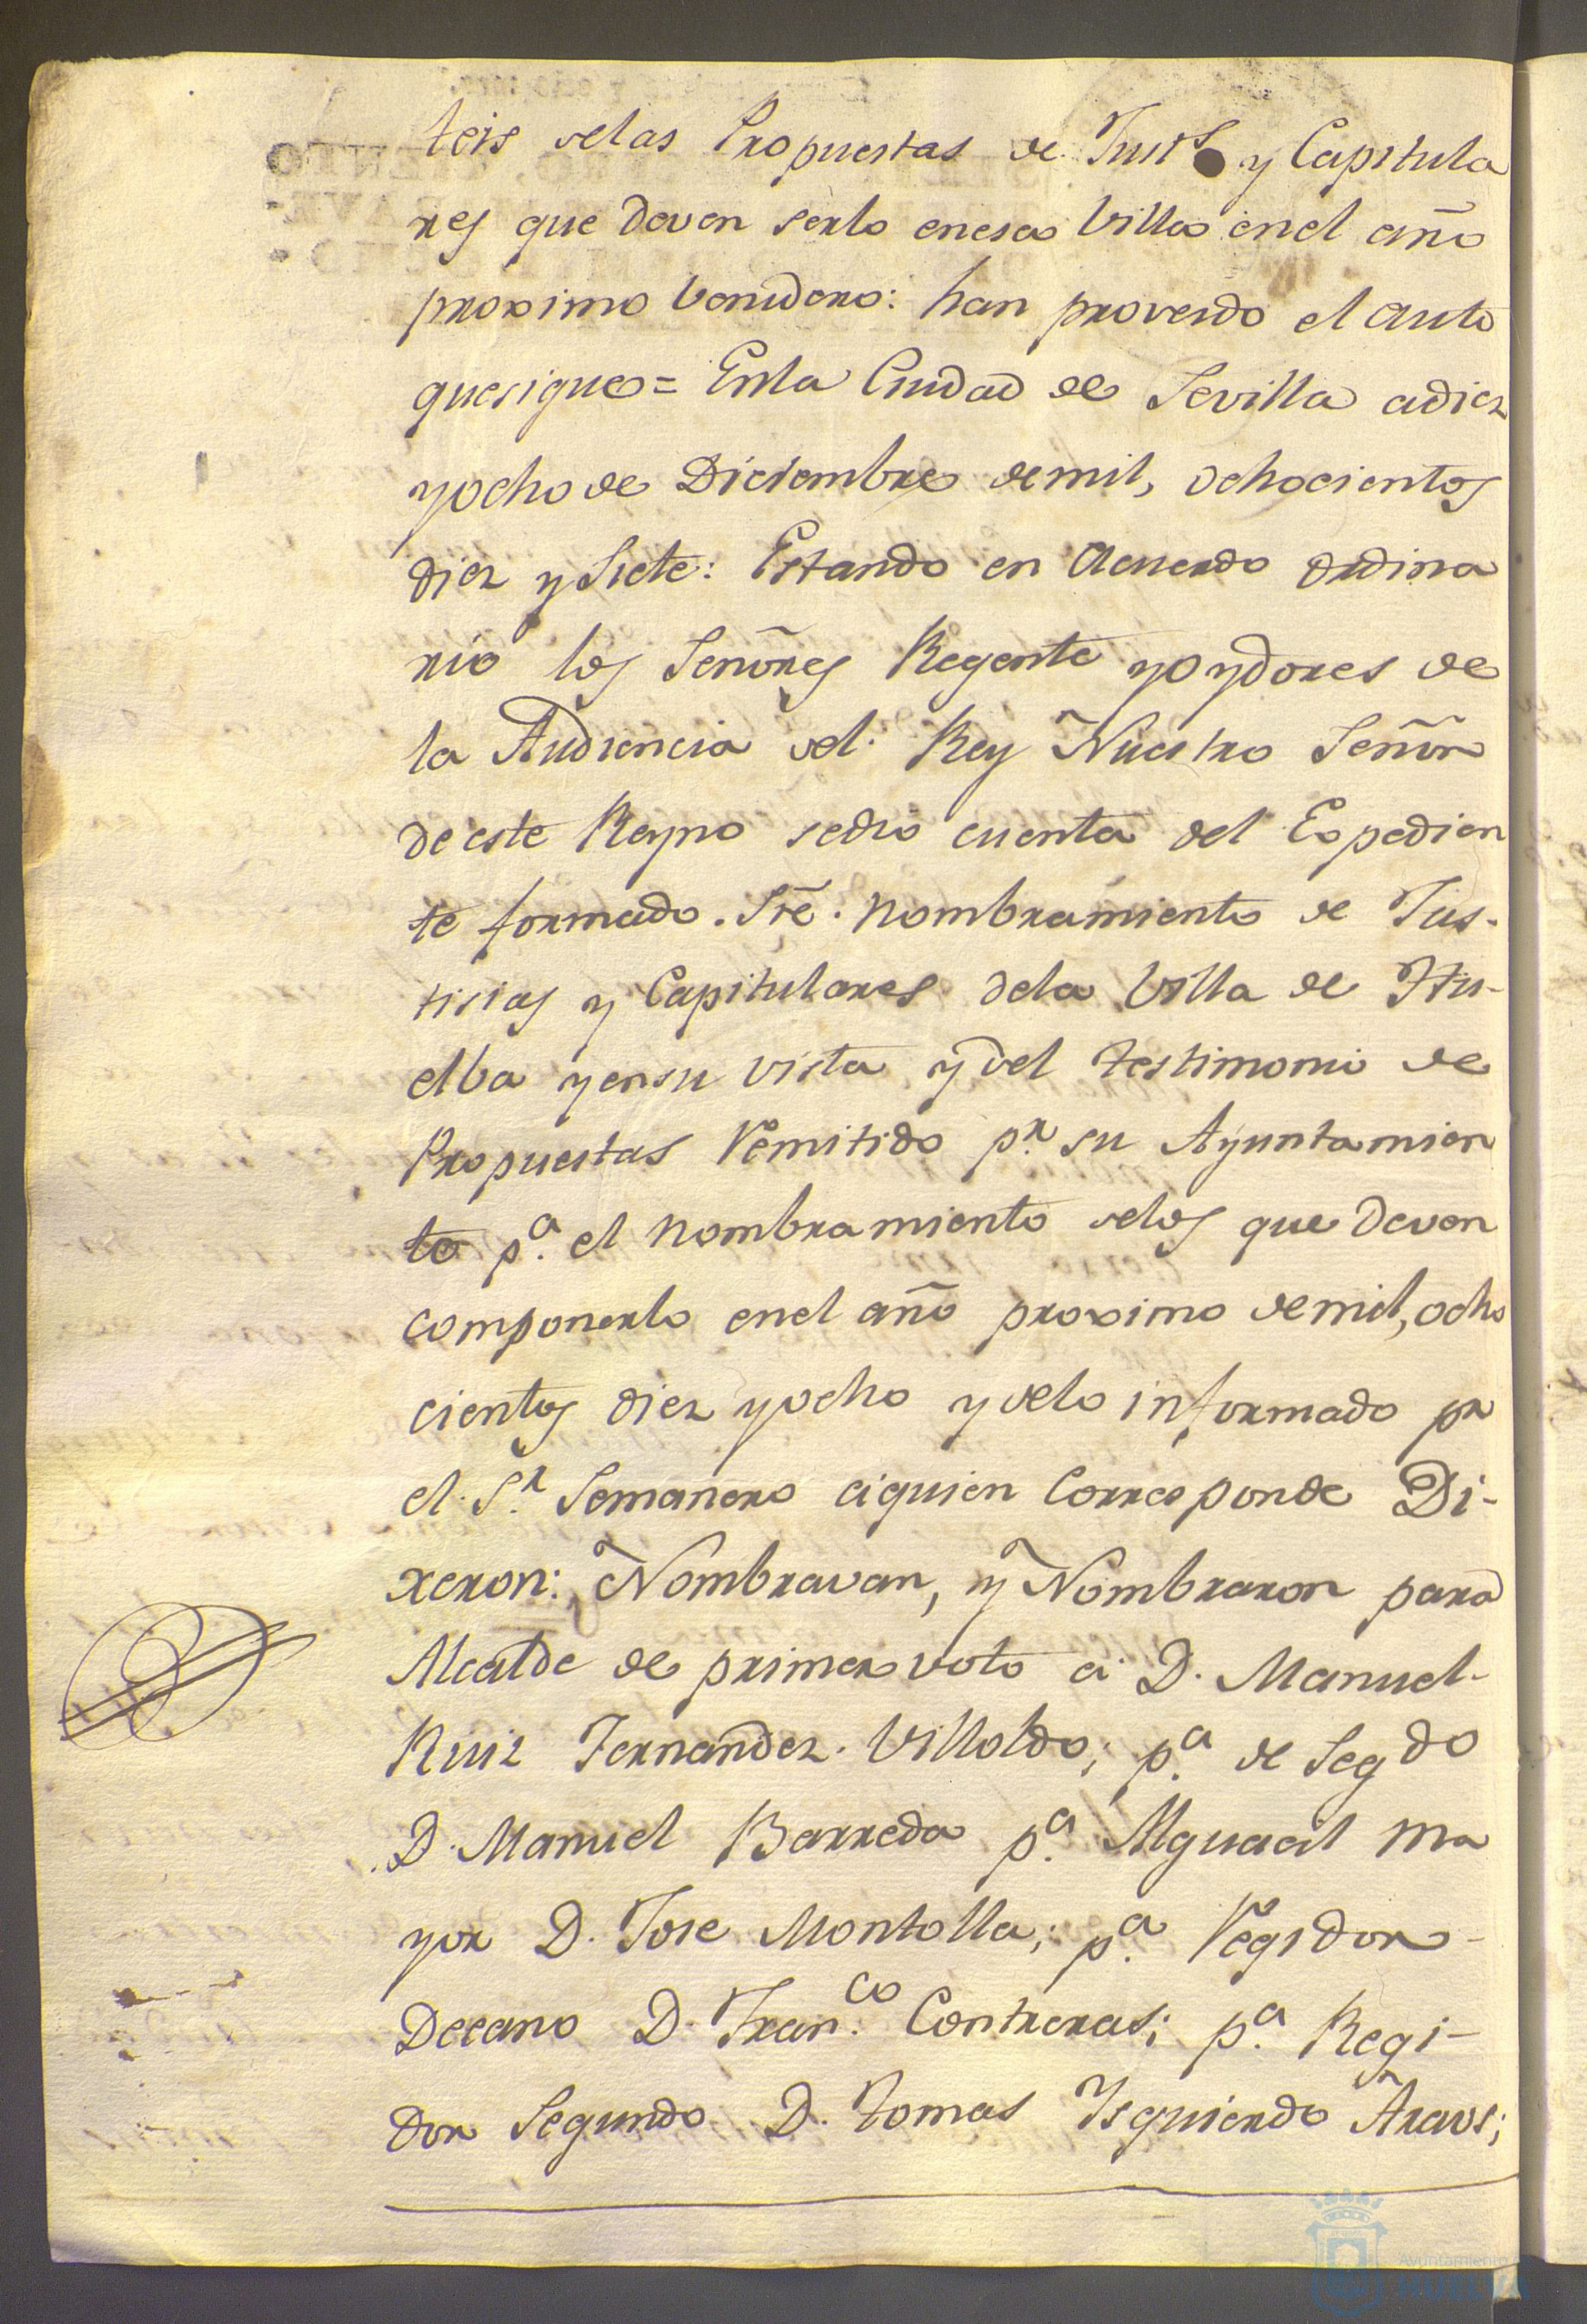 teis delas Propuestas de Justs y Capitula
res que deven serlo enesa Villa enel año
proximo venidero: han proveido el auto
quesigue= Enla Ciudad de Sevilla adiez
yocho de Diciembre demil, ochocientos
diez y Siete: Estando en Acuerdo ordina
rio los Señores Regente yoydores de
la Audiencia del Rey Nuestro Señor
deeste Reyno sedio cuenta del Expedien
te formado. Sre. nombramiento de Jus-
ticias y Capitulares dela Villa de Hu-
elba yensu vista y del testimonio de
Propuestas Remitido pr. su Ayuntamien
to pa. el nombramiento delos que deven
componerlo enel año proximo demil, ocho
cientos diez yocho y delo informado pr
el Sr. Semanero aquien Corresponde Di-
xeron: Nombravan, y Nombraron para
Alcalde de primer voto a D. Manuel
Ruiz Fernandez Villoldo; pa. de Segdo
D. Manuel Barreda pa. Alguacil ma
yor D. Jose Montolla; pa. Regidor
Decano D. Fran.co Contreras; pa. Regi-
dor Segundo D. Tomas Isquierdo Araus;
Ayuntamiento
HUELVA